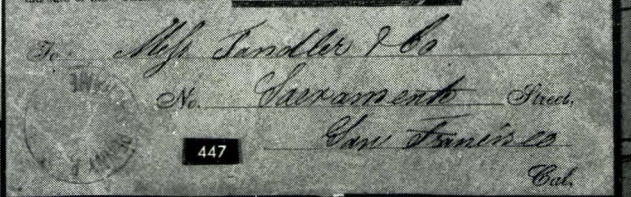 To Mess Sandler & Co
No. Sacramento Street,
San Francisco
447
Cal.